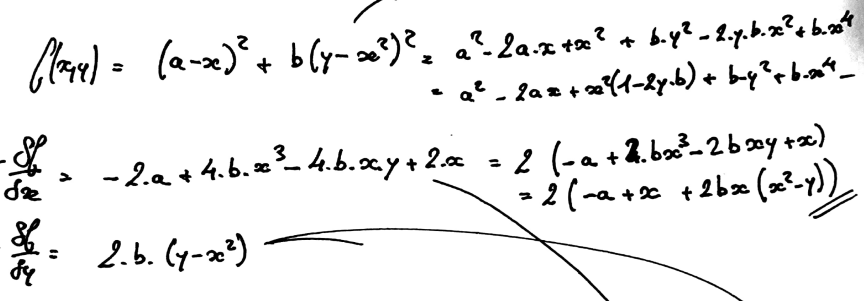 f(x,y) = (a-x)² + b(y-x²)² = a² - 2a.x + x² + b.y² - 2.y.b.x² + b.x⁴
= a² - 2ax + x²(1-2y.b) + b.y² + b.x⁴ -
δf/δx = -2.a + 4.b.x³ - 4.b.x.y + 2.x = 2 (-a + 2.bx³ - 2bxy + x)
= 2 (-a + x + 2bx (x²-y))
δf/δy = 2.b. (y-x²)